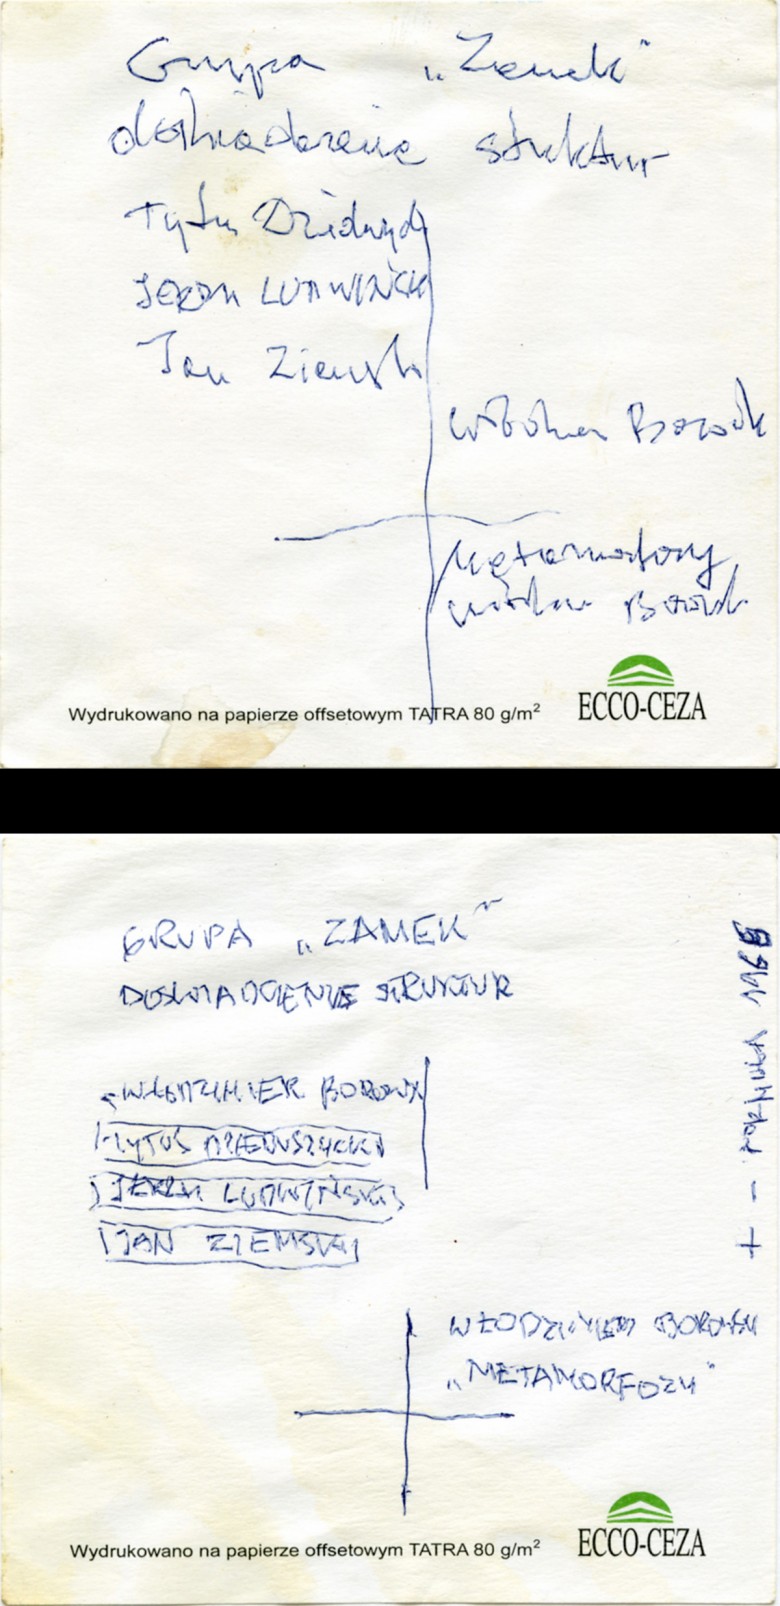 Grupa „Zamek"
doświadczenie struktur
Tytus Dzieduszycki
JERZY LUDWIŃSKI
Jan Ziemski
Włodzimierz Borowski
Metamorfozy
Włodzimierz Borowski
Wydrukowano na papierze offsetowym TATRA 80 g/m²
ECCO-CEZA
GRUPA „ZAMEK"
DOŚWIADCZENIE STRUKTUR
WŁODZIMIER BOROWSKI
TYTUS DZIEDUSZYCKI
JERZY LUDWIŃSKI
JAN ZIEMSKI
WŁODZIMIERZ BOROWSKI
„METAMORFOZY"
+ - FORMUŁA 1966
Wydrukowano na papierze offsetowym TATRA 80 g/m²
ECCO-CEZA